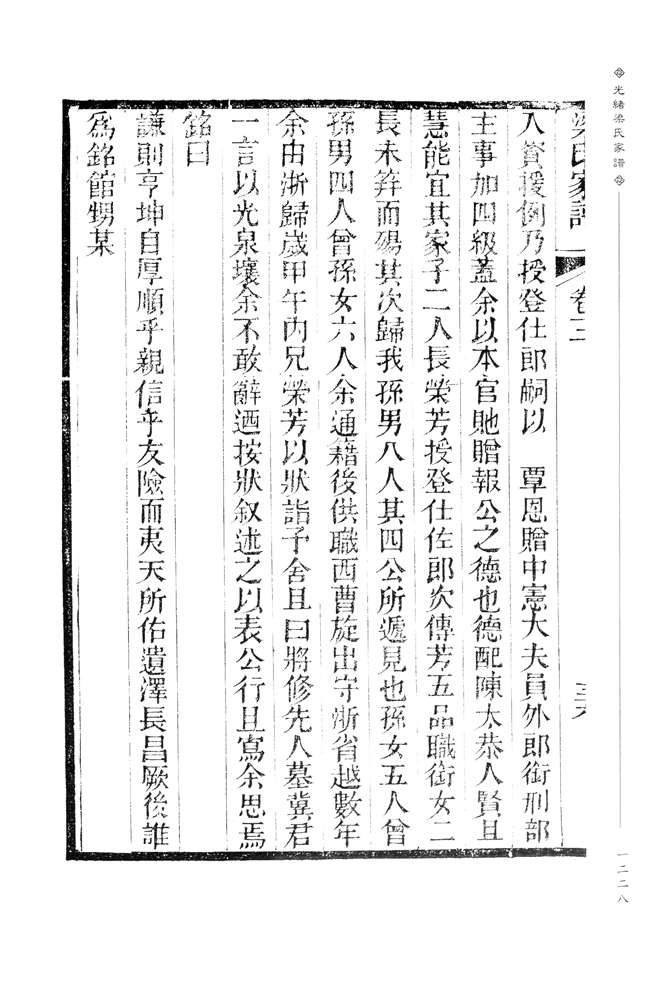 光緒梁氏家譜
一二二八
梁氏家譜 卷三 三六
入貲援例乃授登仕郎嗣以 覃恩贈中憲大夫員外郎銜刑部
主事加四級蓋余以本官貤贈報公之德也德配陳太恭人賢且
慧能宜其家子二人長榮芳授登仕佐郎次傳芳五品職銜女二
長未笄而殤其次歸我孫男八人其四公所遞見也孫女五人曾
孫男四人曾孫女六人余通籍後供職西曹旋出守浙省越數年
余由浙歸歲甲午內兄榮芳以狀詣予舍且曰將修先人墓冀君
一言以光泉壤余不敢辭迺按狀叙述之以表公行且寫余思焉
銘曰
謙則亨坤自厚順乎親信乎友險而夷天所佑遺澤長昌厥後誰
為銘館甥某